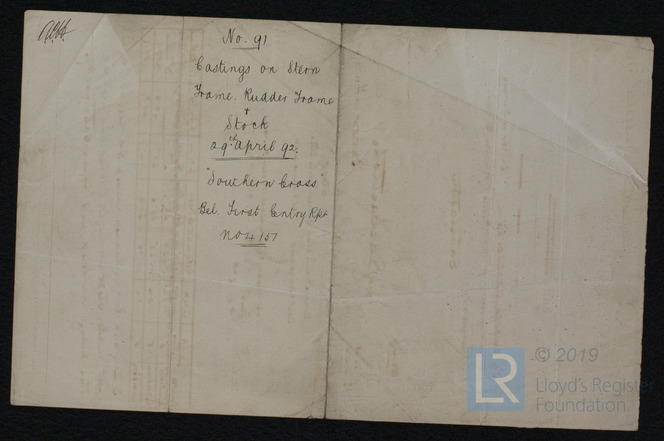 No. 91
Castings on Stern
Frame. Rudder Frame
+
Stock
29th April 92.
"Southern Cross"
Bel. First Entry Rpt
No 4157
LR
© 2019
Lloyd's Register
Foundation